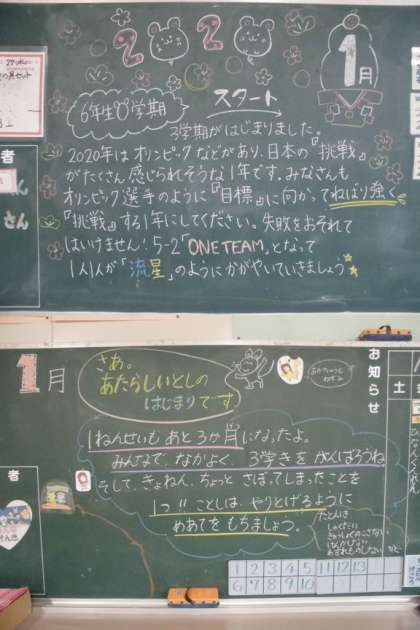 2020
1月
6年生0学期
スタート
3学期がはじまりました。
2020年はオリンピックなどがあり、日本の『挑戦』
がたくさん感じられそうな1年です。みなさんも
オリンピック選手のように『目標』に向かってねばり強く
『挑戦』する1年にしてください。失敗をおそれて
はいけません!5-2「ONE TEAM」となって
1人1人が「流星」のようにかがやいていきましょう
者
さん
1月
さあ。
あたらしいとしの
はじまりです
1ねんせいも あと3か月になったよ。
みんなで、なかよく、3学きをがんばろうね
そして、きょねん、ちょっと さぼってしまったことを
1つ!!ことしは、やりとげるように
めあてをもちましょう。
たとえば
しゅくだい
きゅうしょくのこさない
わすれものしない など
お知らせ
土
者
1 2 3 4 5 11 12 13
6 7 8 9 10